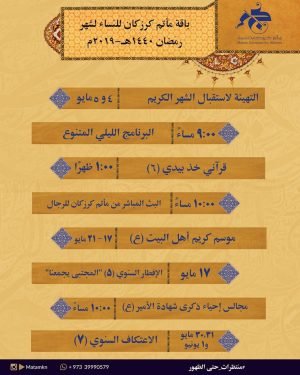 باقة مأتم كرزكان للنساء لشهر
رمضان ١٤٤٠هـ-٢٠١٩م
التهيئة لاستقبال الشهر الكريم
٤ و ٥ مايو
٩:٠٠ مساءً
البرنامج الليلي المتنوع
قرآني خذ بيدي (٦)
١:٠٠ ظهرًا
١٠:٠٠ مساءً
البث المباشر من مأتم كرزكان للرجال
موسم كريم أهل البيت (ع)
١٧ - ٢١ مايو
١٧ مايو
الإفطار السنوي (٥) "المجتبى يجمعنا"
مجالس إحياء ذكرى شهادة الأمير (ع)
١٠:٠٠ مساءً
٣٠،٣١ مايو
و١ يونيو
الاعتكاف السنوي (٧)
Matamkn
+ 973 39990579
#منتظرات_حتى_الظهور